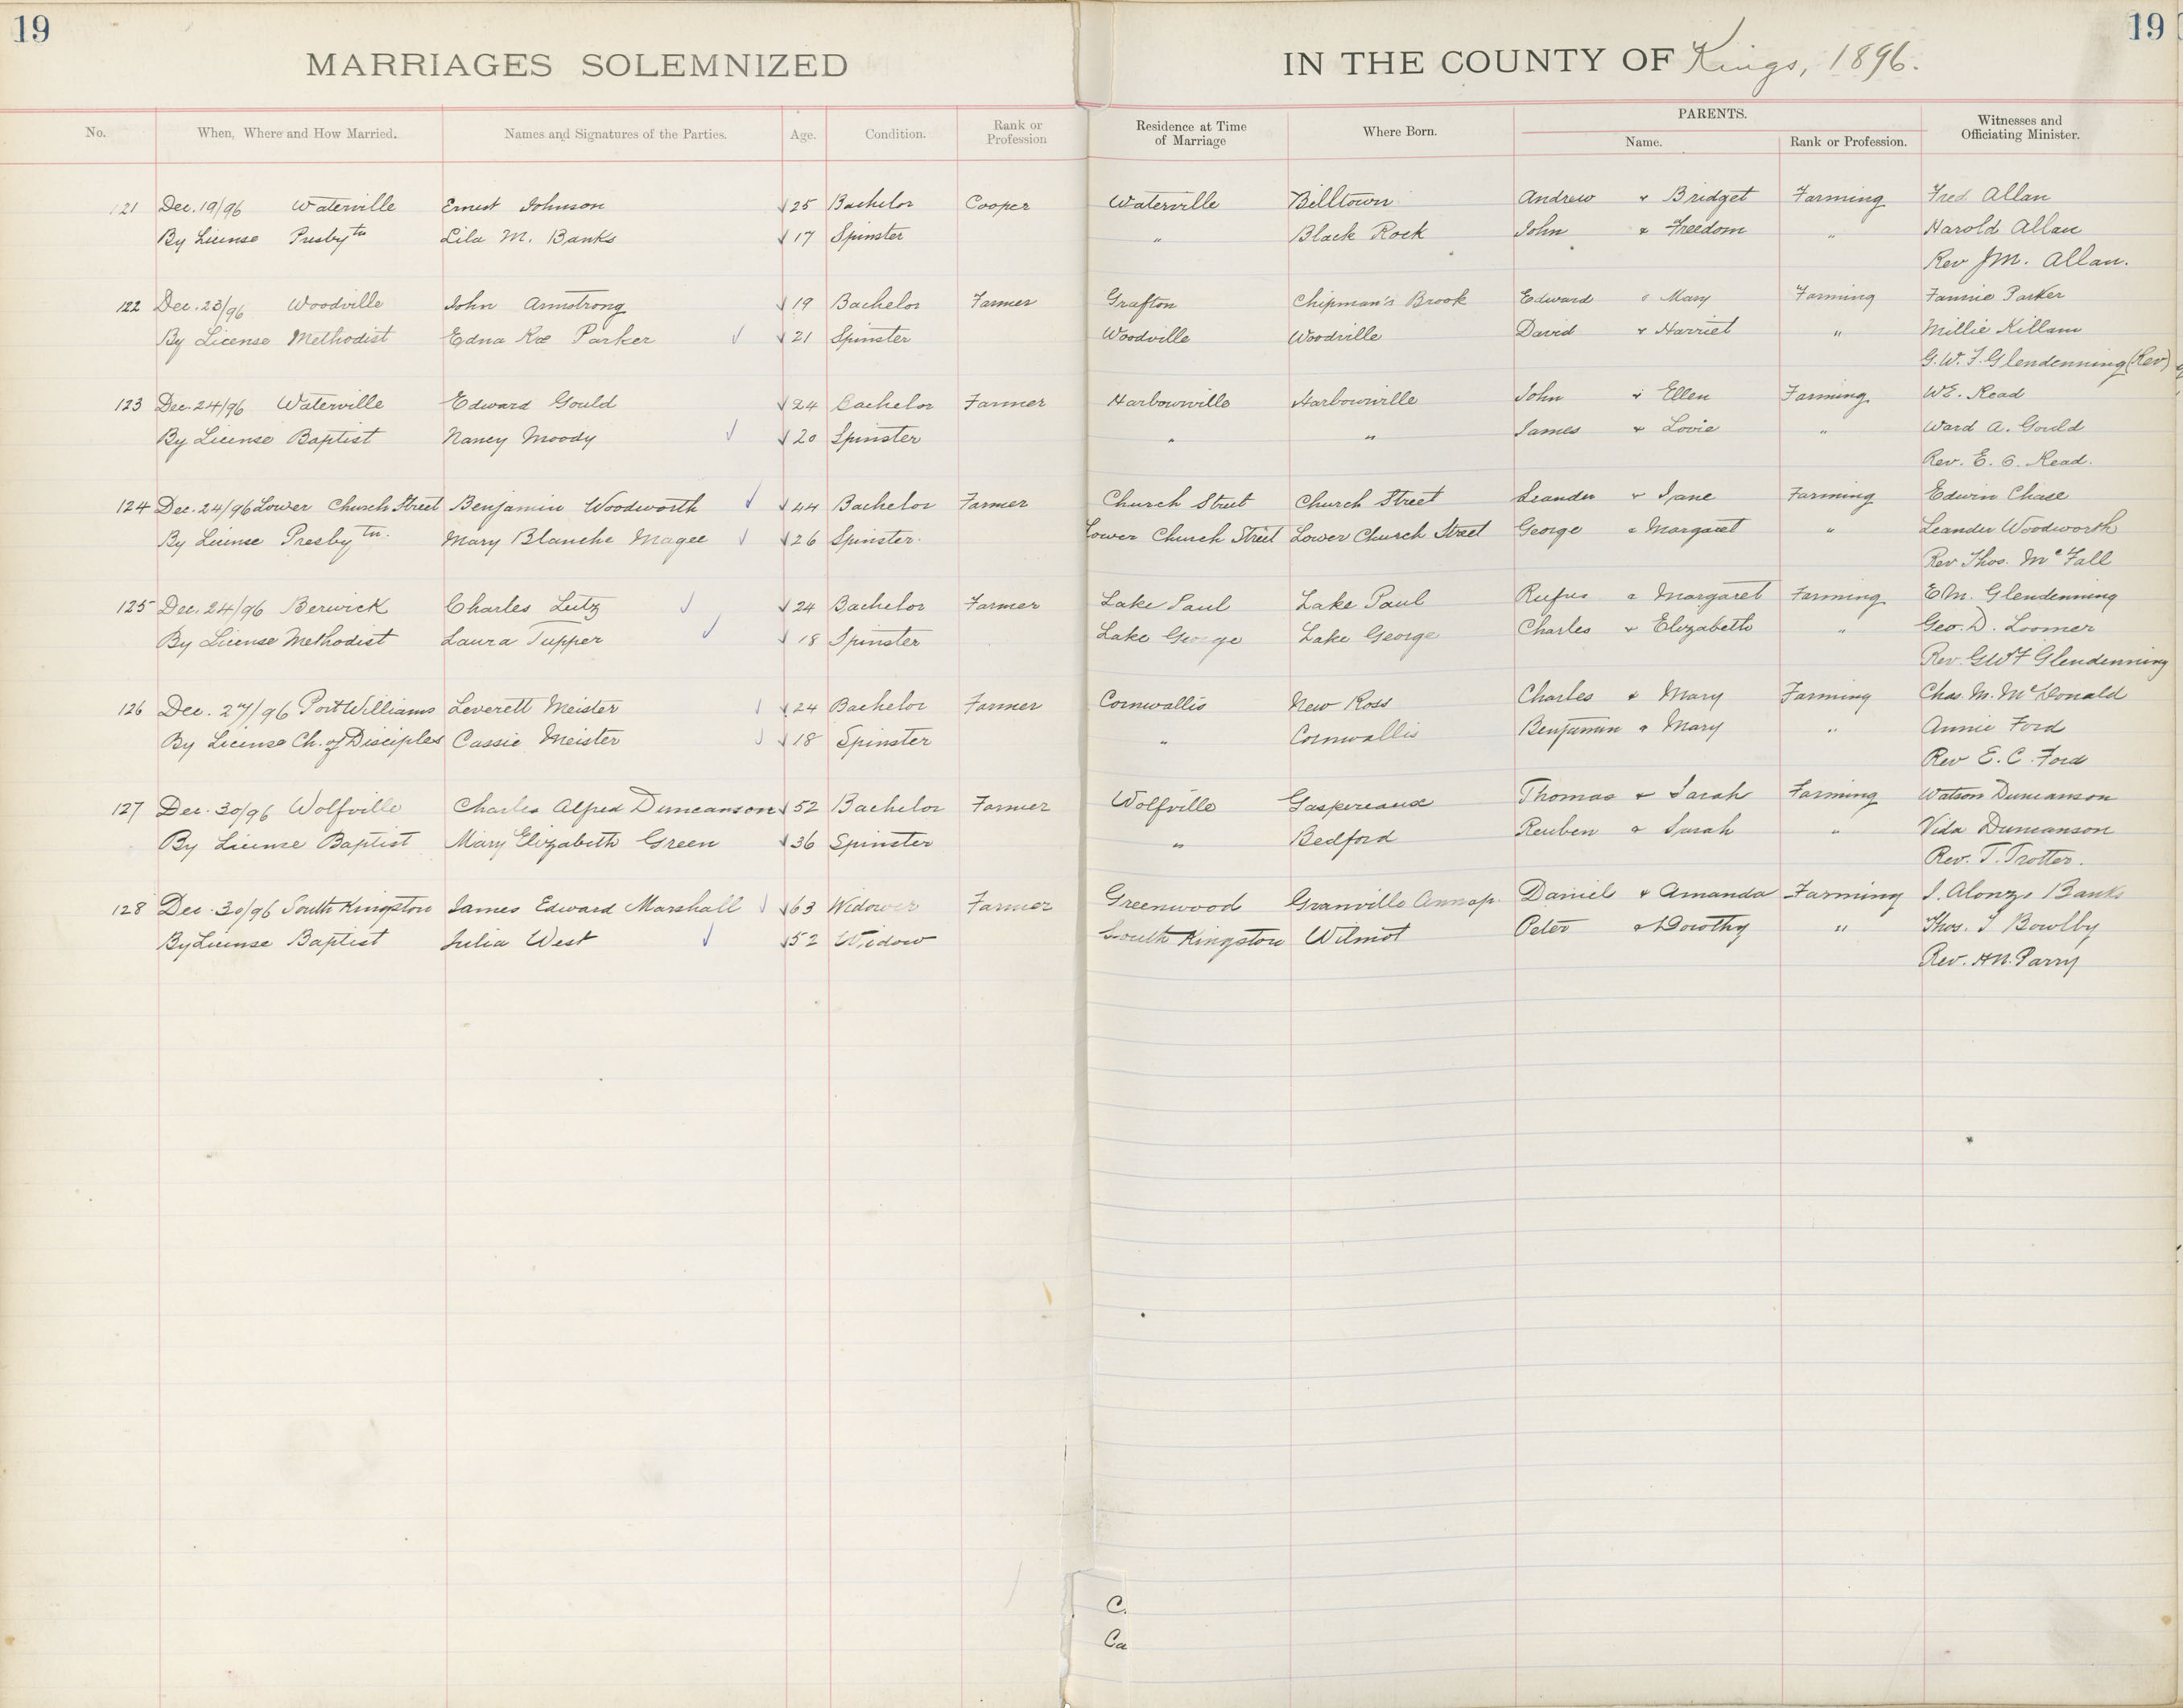 19 19
MARRIAGES SOLEMNIZED IN THE COUNTY OF Kings, 1896.
No. When, Where and How Married. Names and Signatures of the Parties. Age. Condition. Rank or Profession Residence at Time of Marriage Where Born. PARENTS. Name. Rank or Profession. Witnesses and Officiating Minister.
121 Dec. 19/96 Waterville Ernest Johnson 25 Bachelor Cooper Waterville Billtown Andrew & Bridget Farming Fred Allan
By License Presbytn Lila M. Banks 17 Spinster " Black Rock John & Freedom " Harold Allan
Rev J.M. Allan.
122 Dec. 23/96 Woodville John Armstrong 19 Bachelor Farmer Grafton Chipman's Brook Edward & Mary Farming Fannie Parker
By License Methodist Edna Rae Parker 21 Spinster Woodville Woodville David & Harriet " Millie Killam
G.W.F. Glendenning (Rev)
123 Dec. 24/96 Waterville Edward Gould 24 Bachelor Farmer Harbourville Harbourville John & Ellen Farming W.E. Read
By License Baptist Nancy Moody 20 Spinster " " James & Lovie " Ward A. Gould
Rev. E. O. Read.
124 Dec. 24/96 Lower Church Street Benjamin Woodworth 44 Bachelor Farmer Church Street Church Street Leander & Jane Farming Edwin Chase
By License Presbytn. Mary Blanche Magee 26 Spinster. Lower Church Street Lower Church Street George & Margaret " Leander Woodworth
Rev Thos. McFall
125 Dec. 24/96 Berwick Charles Lutz 24 Bachelor Farmer Lake Paul Lake Paul Rufus & Margaret Farming E.M. Glendenning
By License Methodist Laura Tupper 18 Spinster Lake George Lake George Charles & Elizabeth " Geo. D. Loomer
Rev. G.W.F Glendenning
126 Dec. 27/96 Port Williams Leverett Meister 24 Bachelor Farmer Cornwallis New Ross Charles & Mary Farming Chas. M. McDonald
By License Ch. of Disciples Cassie Meister 18 Spinster " Cornwallis Benjamin & Mary " Annie Ford
Rev E. C. Ford
127 Dec. 30/96 Wolfville Charles Alfred Duncanson 52 Bachelor Farmer Wolfville Gaspereaux Thomas & Sarah Farming Watson Duncanson
By License Baptist Mary Elizabeth Green 36 Spinster " Bedford Reuben & Sarah " Vida Duncanson
Rev. T. Trotter.
128 Dec. 30/96 South Kingston James Edward Marshall 63 Widower Farmer Greenwood Granville Annap. Daniel & Amanda Farming J. Alonzo Banks
By License Baptist Julia West 52 Widow South Kingston Wilmot Peter & Dorothy " Thos. J Bowlby
Rev. H.N. Parry
C.
Ca